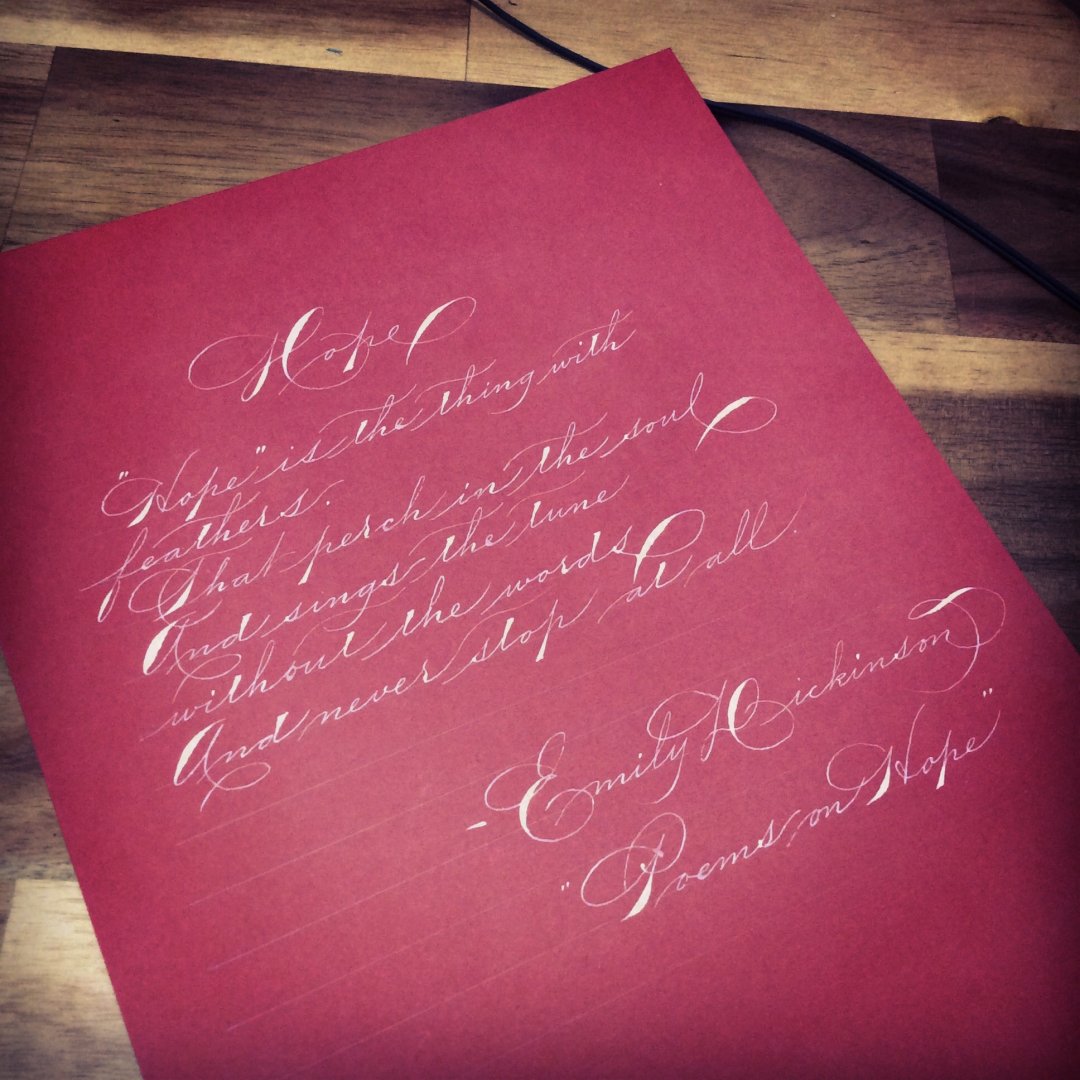 Hope
"Hope" is the thing with
feathers.
That perch in the soul
And sings the tune
without the words
And never stop at all.
- Emily Dickinson
"Poems on Hope"